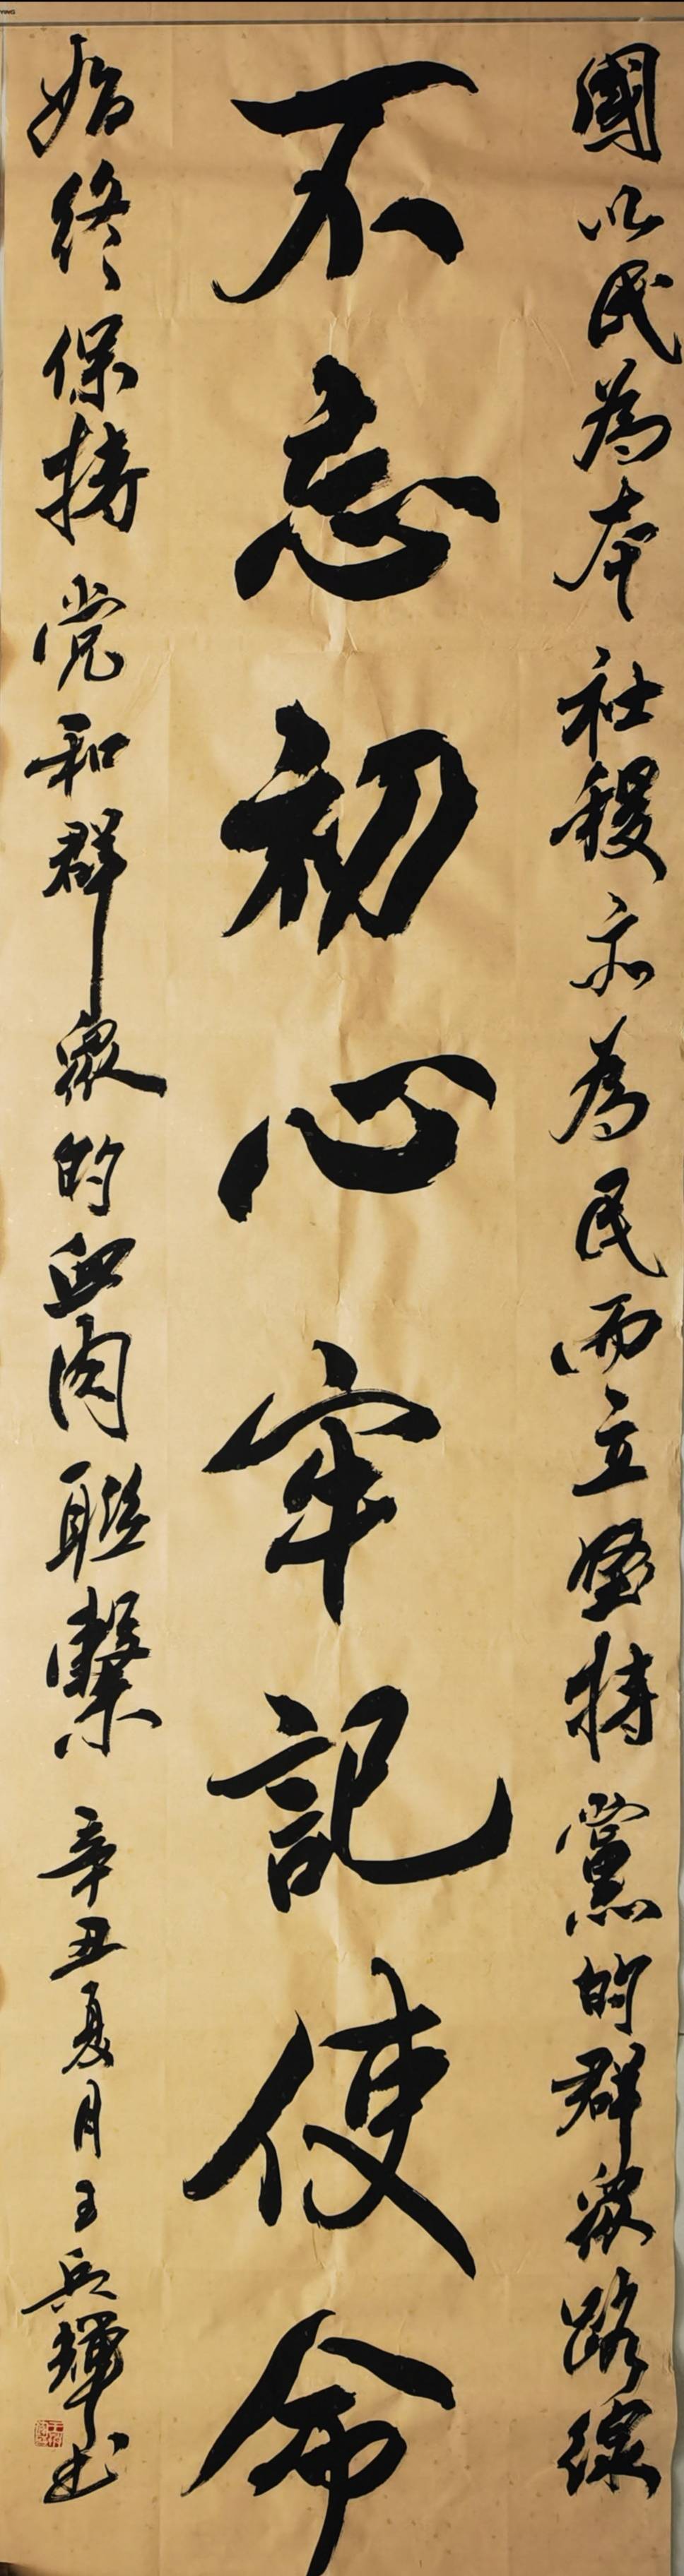 國以民為本社稷亦為民而立堅持黨的群众路線
不忘初心牢記使命
始終保持党和群眾的血肉聯繫
辛丑夏月王兵輝书